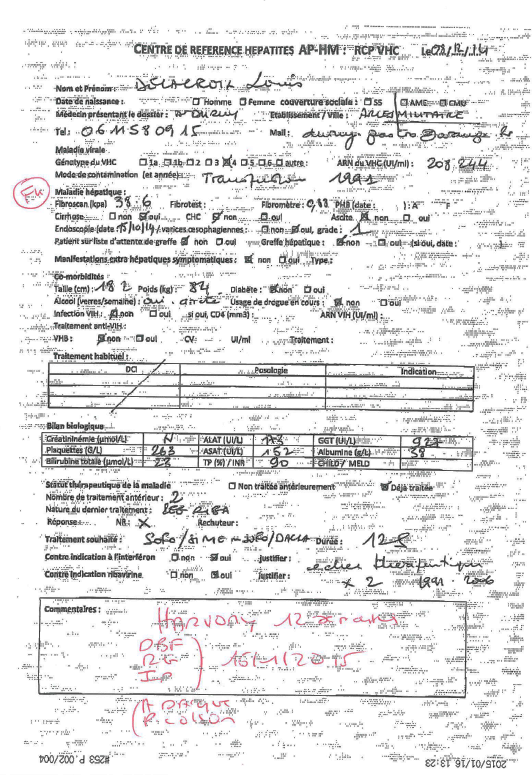 CENTRE DE REFERENCE HEPATITES AP-HM : RCP VHC Le
Nom et Prénom : DELACROIX Louis
Date de naissance : ☐ Homme ☐ Femme couverture sociale : ☐ SS ☐ AME ☐ CMU
Médecin présentant le dossier : Etablissement / Ville : ARLES
Tel : 0611580915 Mail :
Maladie virale
Génotype du VHC ☐ 1a ☐ 1b ☐ 2 ☐ 3 ☒ 4 ☐ 5 ☐ 6 ☐ autre : ARN du VHC (UI/ml) : 208 244
Mode de contamination (et année) : Transfusion 1991
Maladie hépatique :
Fibroscan (kpa) 38.6 Fibrotest : Fibromètre : 0,88 PHB (date : ) : A F
Cirrhose : ☐ non ☒ oui CHC ☒ non ☐ oui Ascite ☒ non ☐ oui
Endoscopie (date 15/10/14) varices œsophagiennes : ☐ non ☒ oui, grade : 1
Patient sur liste d'attente de greffe ☒ non ☐ oui Greffe hépatique : ☒ non ☐ oui (si oui, date : )
Manifestations extra hépatiques symptomatiques : ☒ non ☐ oui Type :
Co-morbidités
Taille (cm) : 182 Poids (kg) : 84 Diabète : ☒ non ☐ oui
Alcool (verres/semaine) : oui arrêté Usage de drogue en cours : ☒ non ☐ oui
Infection VIH : ☒ non ☐ oui si oui, CD4 (mm3) : ARN VIH (UI/ml) :
Traitement anti-VIH :
VHB : ☒ non ☐ oui CV: UI/ml Traitement :
Traitement habituel :
DCI Posologie Indication
Bilan biologique
Créatininémie (µmol/L) N ALAT (UI/L) GGT (UI/L) 927
Plaquettes (G/L) 263 ASAT (UI/L) 152 Albumine (g/L) 38
Bilirubine totale (µmol/L) 22 TP (%) / INR 90 CHILD / MELD
Statut thérapeutique de la maladie ☐ Non traitée antérieurement ☒ Déjà traitée
Nombre de traitement antérieur : 2
Nature du dernier traitement : PEG RIBA
Réponse : NR : X Rechuteur :
Traitement souhaité : SOFO/SIME ou SOFO/DACLA Durée : 12 S
Contre indication à l'interféron ☐ non ☒ oui Justifier : échec thérapeutique
Contre indication ribavirine ☐ non ☒ oui Justifier : x 2 1991 2006
Commentaires :
HARVONY 12 semaines
15/1/2015
#263 P.002/004
2015/01/16 13:23